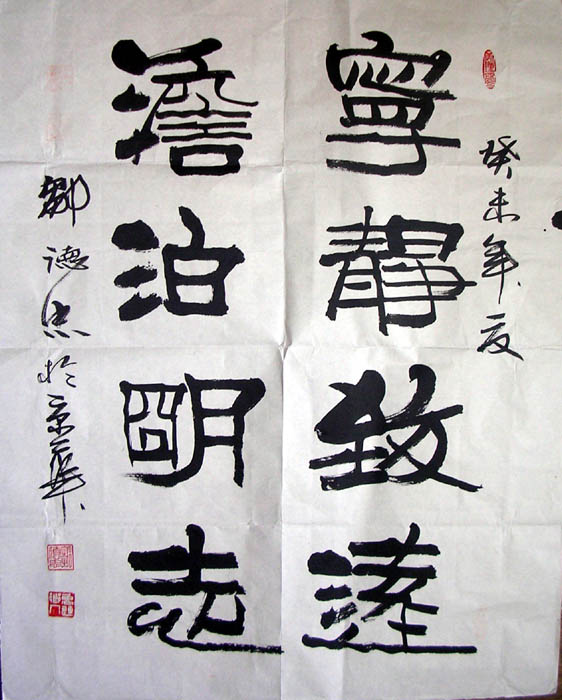 癸未年夏
寧靜致遠
澹泊明志
鄒德忠於京華